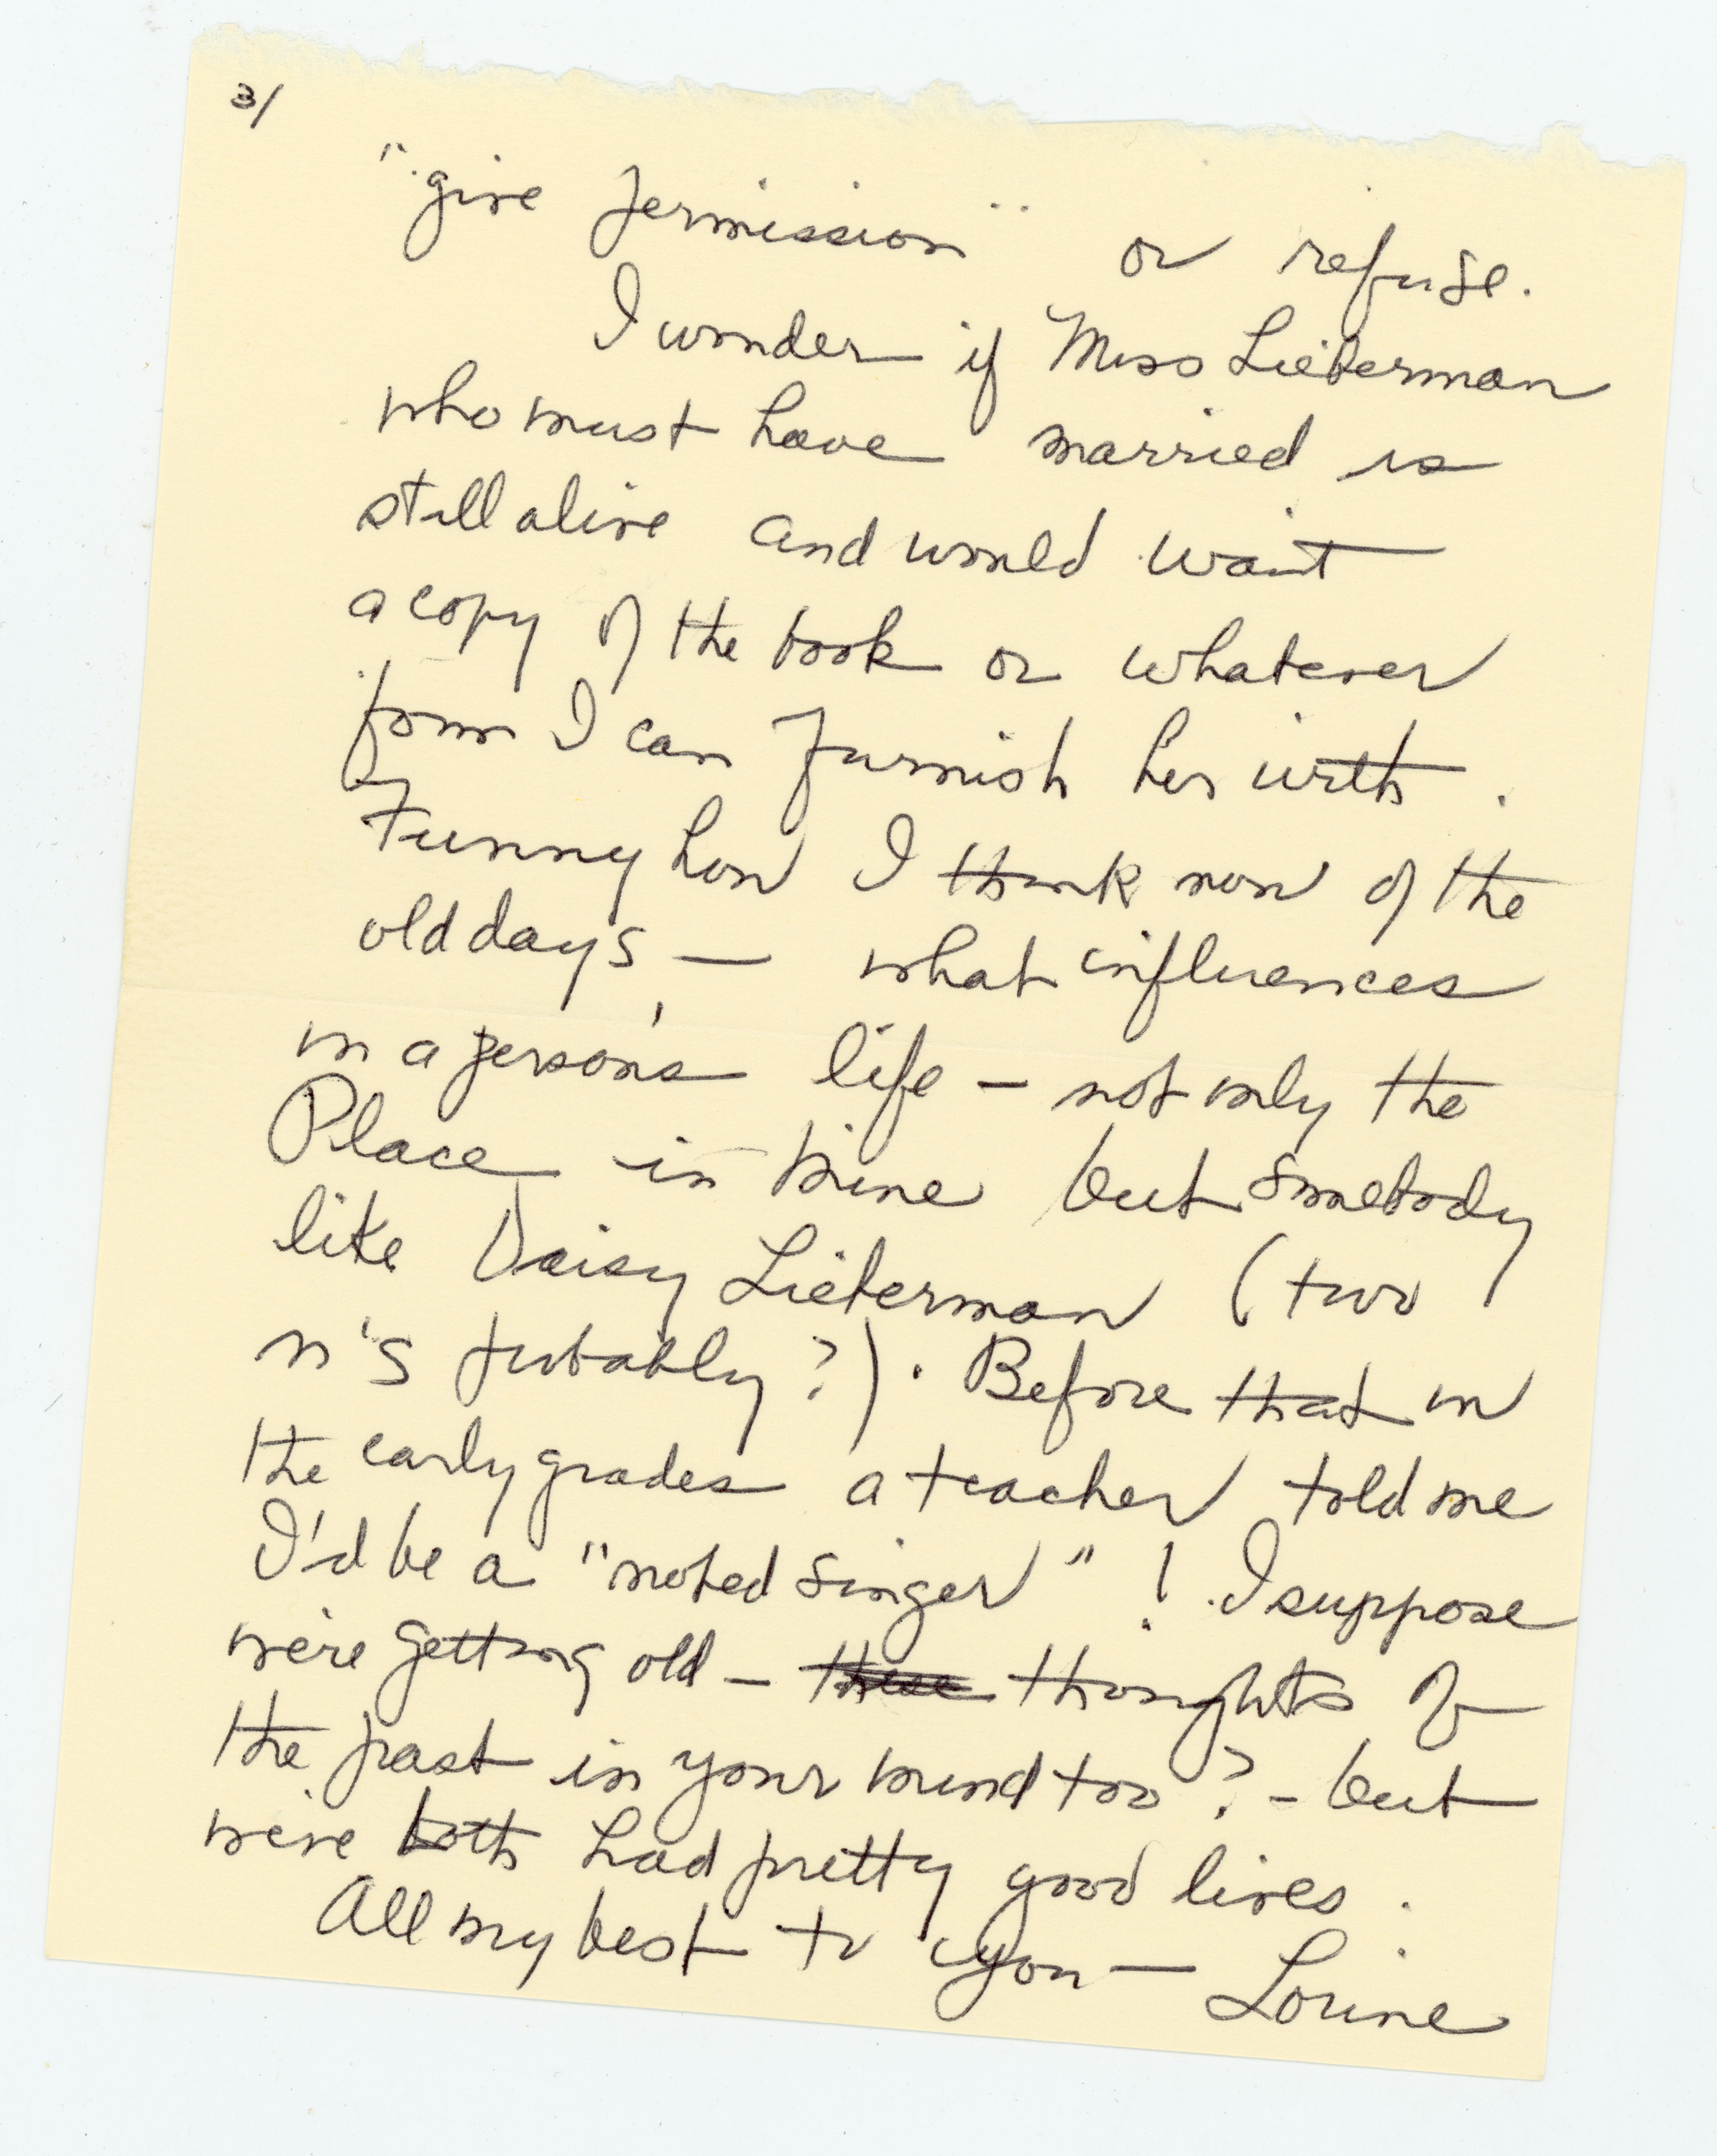 3/
"give permission" or refuse.
I wonder if Miss Lieberman
who must have married is
still alive and would want
a copy of the book or whatever
form I can furnish her with.
Funny how I think now of the
old days — what influences
in a person's life – not only the
Place in mine but somebody
like Daisy Lieberman (two
n's probably?). Before that in
the early grades a teacher told me
I'd be a "noted singer"! I suppose
we're getting old – these thoughts of
the past in your mind too? – but
we've both had pretty good lives.
All my best to you — Lorine